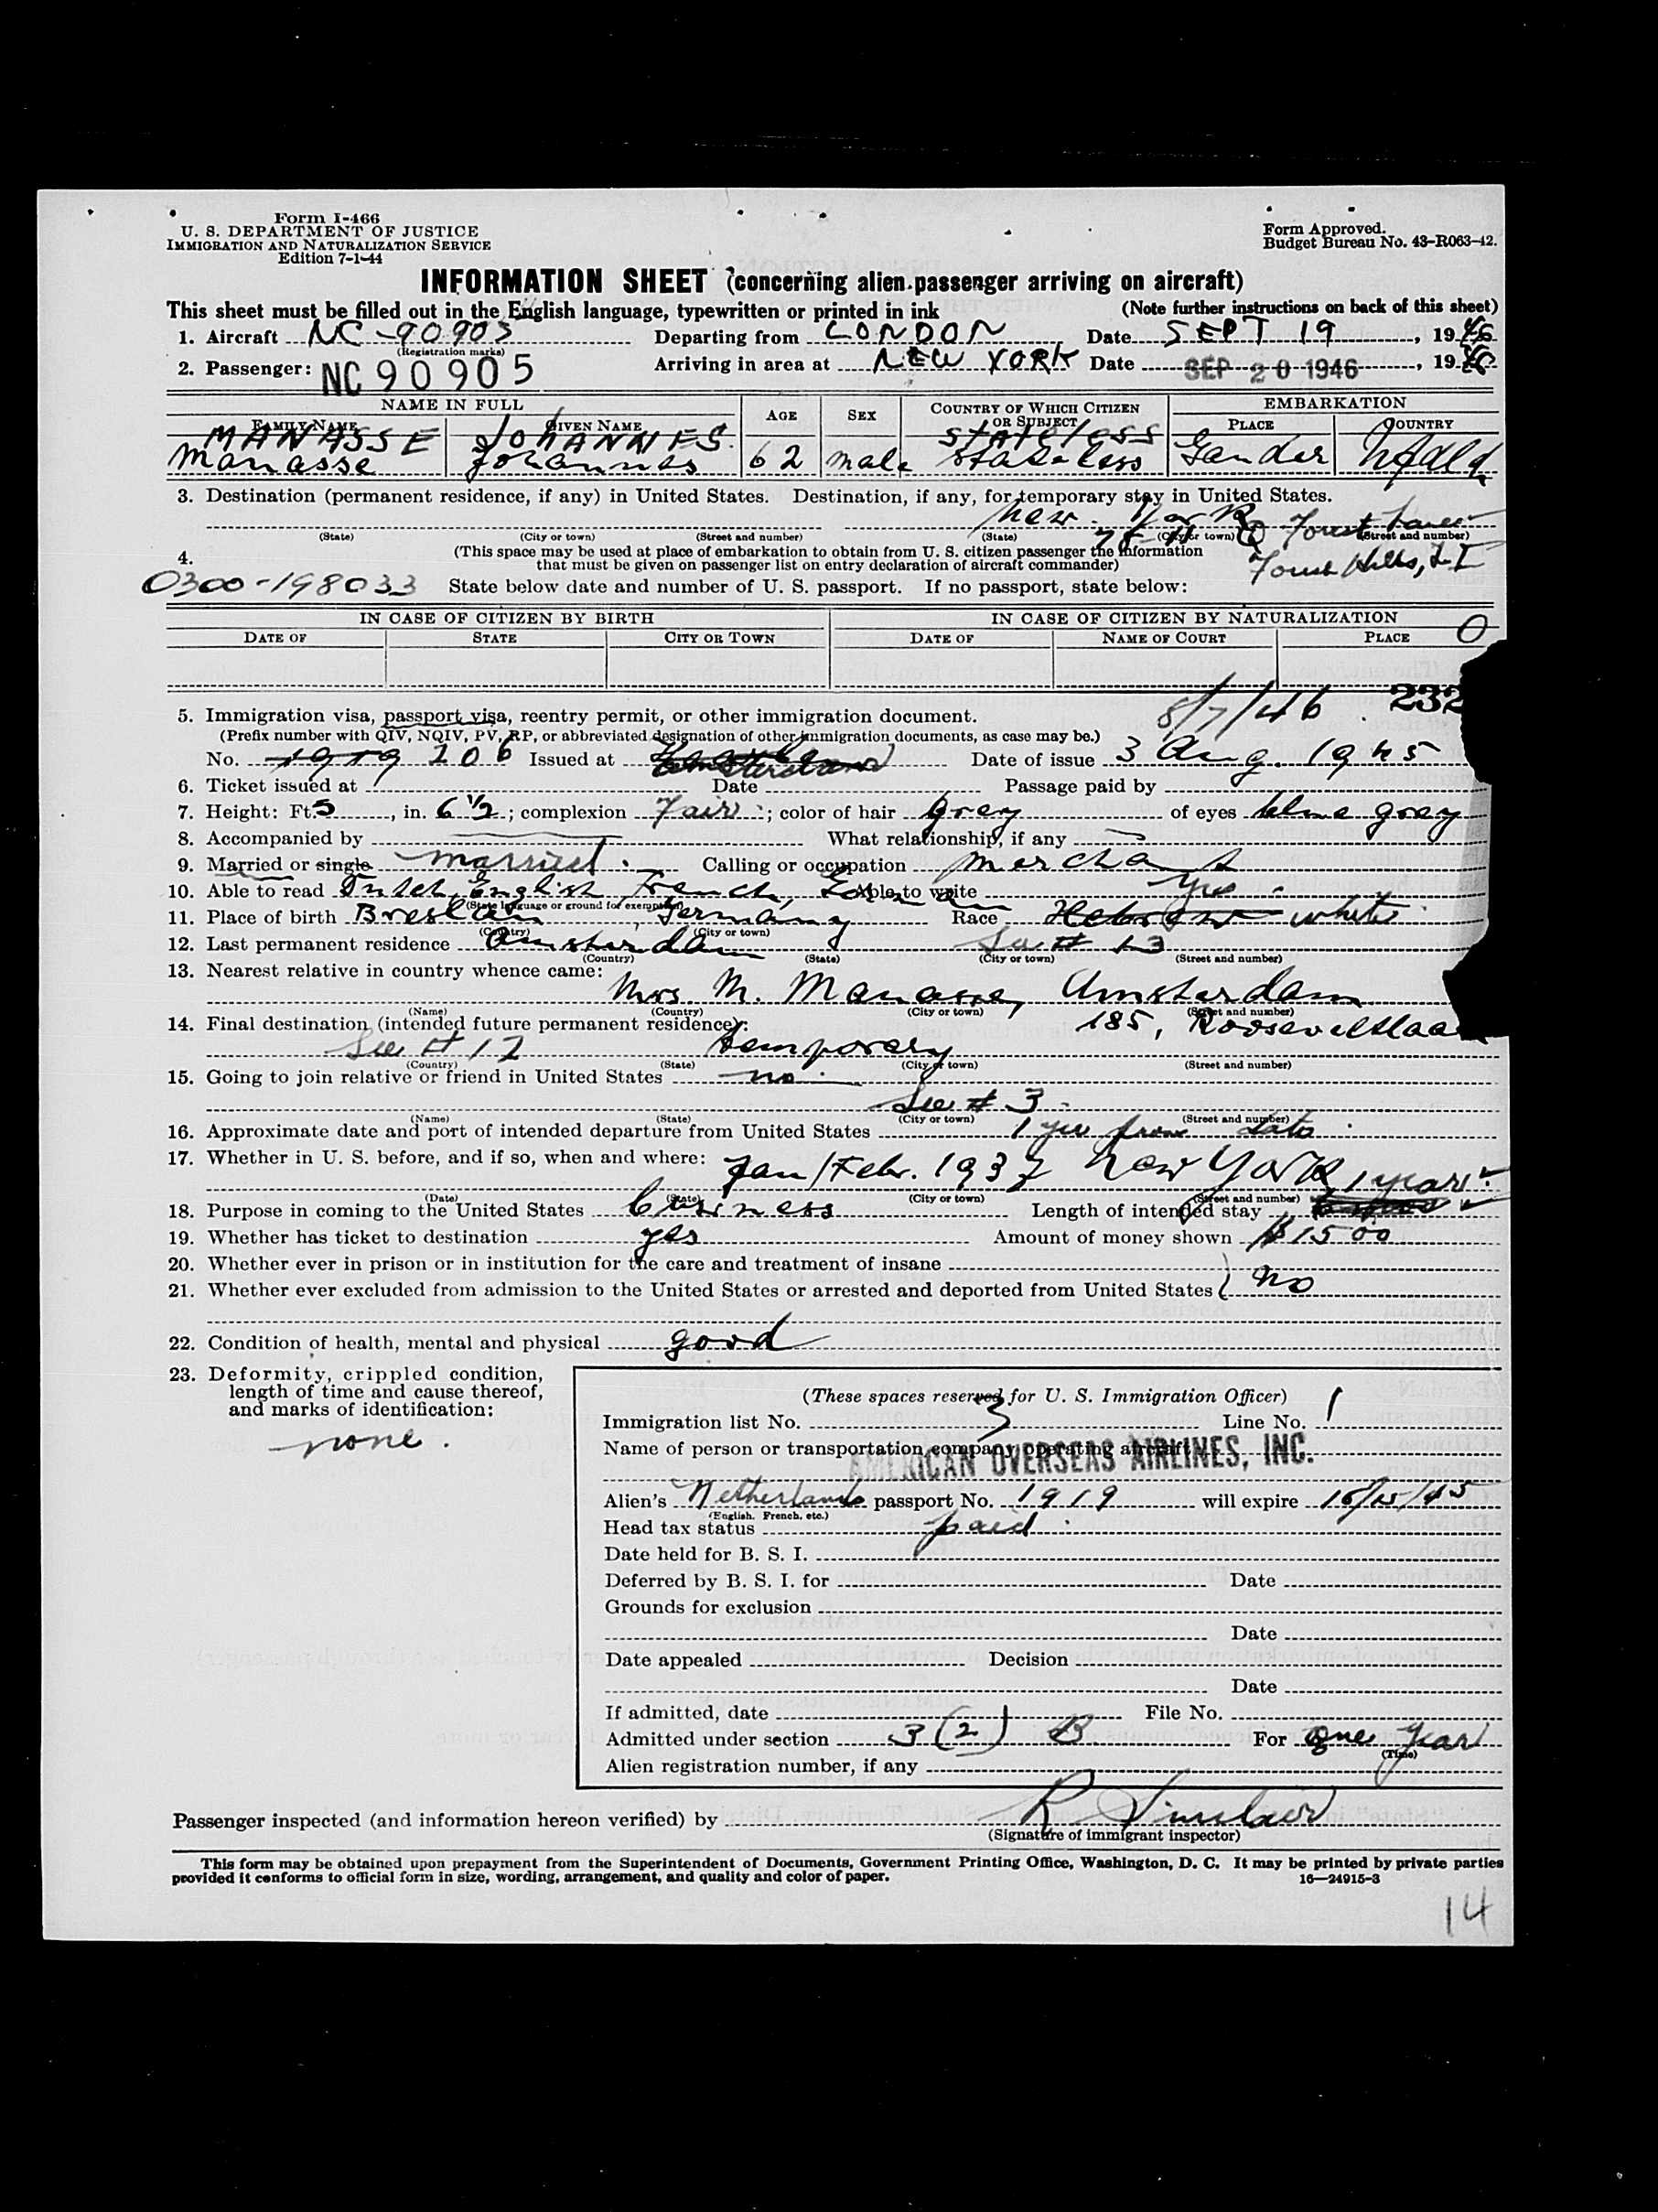 Form I-466
U. S. DEPARTMENT OF JUSTICE
IMMIGRATION AND NATURALIZATION SERVICE
Edition 7-1-44
Form Approved.
Budget Bureau No. 43-R063-42.
INFORMATION SHEET (concerning alien passenger arriving on aircraft)
This sheet must be filled out in the English language, typewritten or printed in ink (Note further instructions on back of this sheet)
1. Aircraft NC-90905 Departing from LONDON Date SEPT 19, 1946
(Registration marks)
2. Passenger: NC 90905 Arriving in area at NEW YORK Date SEP 20 1946, 1946
NAME IN FULL AGE SEX COUNTRY OF WHICH CITIZEN OR SUBJECT EMBARKATION
FAMILY NAME GIVEN NAME PLACE COUNTRY
MANASSE JOHANNES stateless
Manasse Johannes 62 male stateless Gander Nfdld
3. Destination (permanent residence, if any) in United States. Destination, if any, for temporary stay in United States.
New York
(State) (City or town) (Street and number) (State) (City or town) (Street and number)
Forest Hills, L I
4. (This space may be used at place of embarkation to obtain from U. S. citizen passenger the information
that must be given on passenger list on entry declaration of aircraft commander)
0300-198033 State below date and number of U. S. passport. If no passport, state below:
IN CASE OF CITIZEN BY BIRTH IN CASE OF CITIZEN BY NATURALIZATION 0
DATE OF STATE CITY OR TOWN DATE OF NAME OF COURT PLACE
8/7/46 232
5. Immigration visa, passport visa, reentry permit, or other immigration document.
(Prefix number with QIV, NQIV, PV, RP, or abbreviated designation of other immigration documents, as case may be.)
No. 1919 206 Issued at Amsterdam Date of issue 3 Aug. 1945
6. Ticket issued at Date Passage paid by
7. Height: Ft. 5, in. 6 1/2; complexion Fair; color of hair Grey of eyes blue grey
8. Accompanied by What relationship, if any
9. Married or single married. Calling or occupation merchant
10. Able to read Dutch, English, French, German Able to write Yes
(State language or ground for exemption)
11. Place of birth Breslau, Germany Race Hebrew white
(Country) (City or town)
12. Last permanent residence Amsterdam See # 13
(Country) (State) (City or town) (Street and number)
13. Nearest relative in country whence came:
Mrs. M. Manasse, Amsterdam
(Name) (Country) (City or town) (Street and number)
185, Rooseveltlaa
14. Final destination (intended future permanent residence):
See # 12 temporary
(Country) (State) (City or town) (Street and number)
15. Going to join relative or friend in United States no
See # 3
(Name) (State) (City or town) (Street and number)
16. Approximate date and port of intended departure from United States 1 yr from date
17. Whether in U. S. before, and if so, when and where: Jan/Febr. 1937 New York
(Date) (State) (City or town) (Street and number)
1 year
18. Purpose in coming to the United States business Length of intended stay
19. Whether has ticket to destination yes Amount of money shown $ 1500
20. Whether ever in prison or in institution for the care and treatment of insane
21. Whether ever excluded from admission to the United States or arrested and deported from United States no
22. Condition of health, mental and physical good
23. Deformity, crippled condition,
length of time and cause thereof,
and marks of identification:
none.
(These spaces reserved for U. S. Immigration Officer)
Immigration list No. 3 Line No. 1
Name of person or transportation company operating aircraft
AMERICAN OVERSEAS AIRLINES, INC.
Alien's Netherlands passport No. 1919 will expire
(English, French, etc.)
Head tax status paid
Date held for B. S. I.
Deferred by B. S. I. for Date
Grounds for exclusion
Date
Date appealed Decision
Date
If admitted, date File No.
Admitted under section 3(2) B For One Year
(Time)
Alien registration number, if any
Passenger inspected (and information hereon verified) by R Sinclair
(Signature of immigrant inspector)
This form may be obtained upon prepayment from the Superintendent of Documents, Government Printing Office, Washington, D. C. It may be printed by private parties
provided it conforms to official form in size, wording, arrangement, and quality and color of paper.
16—24915-3
14